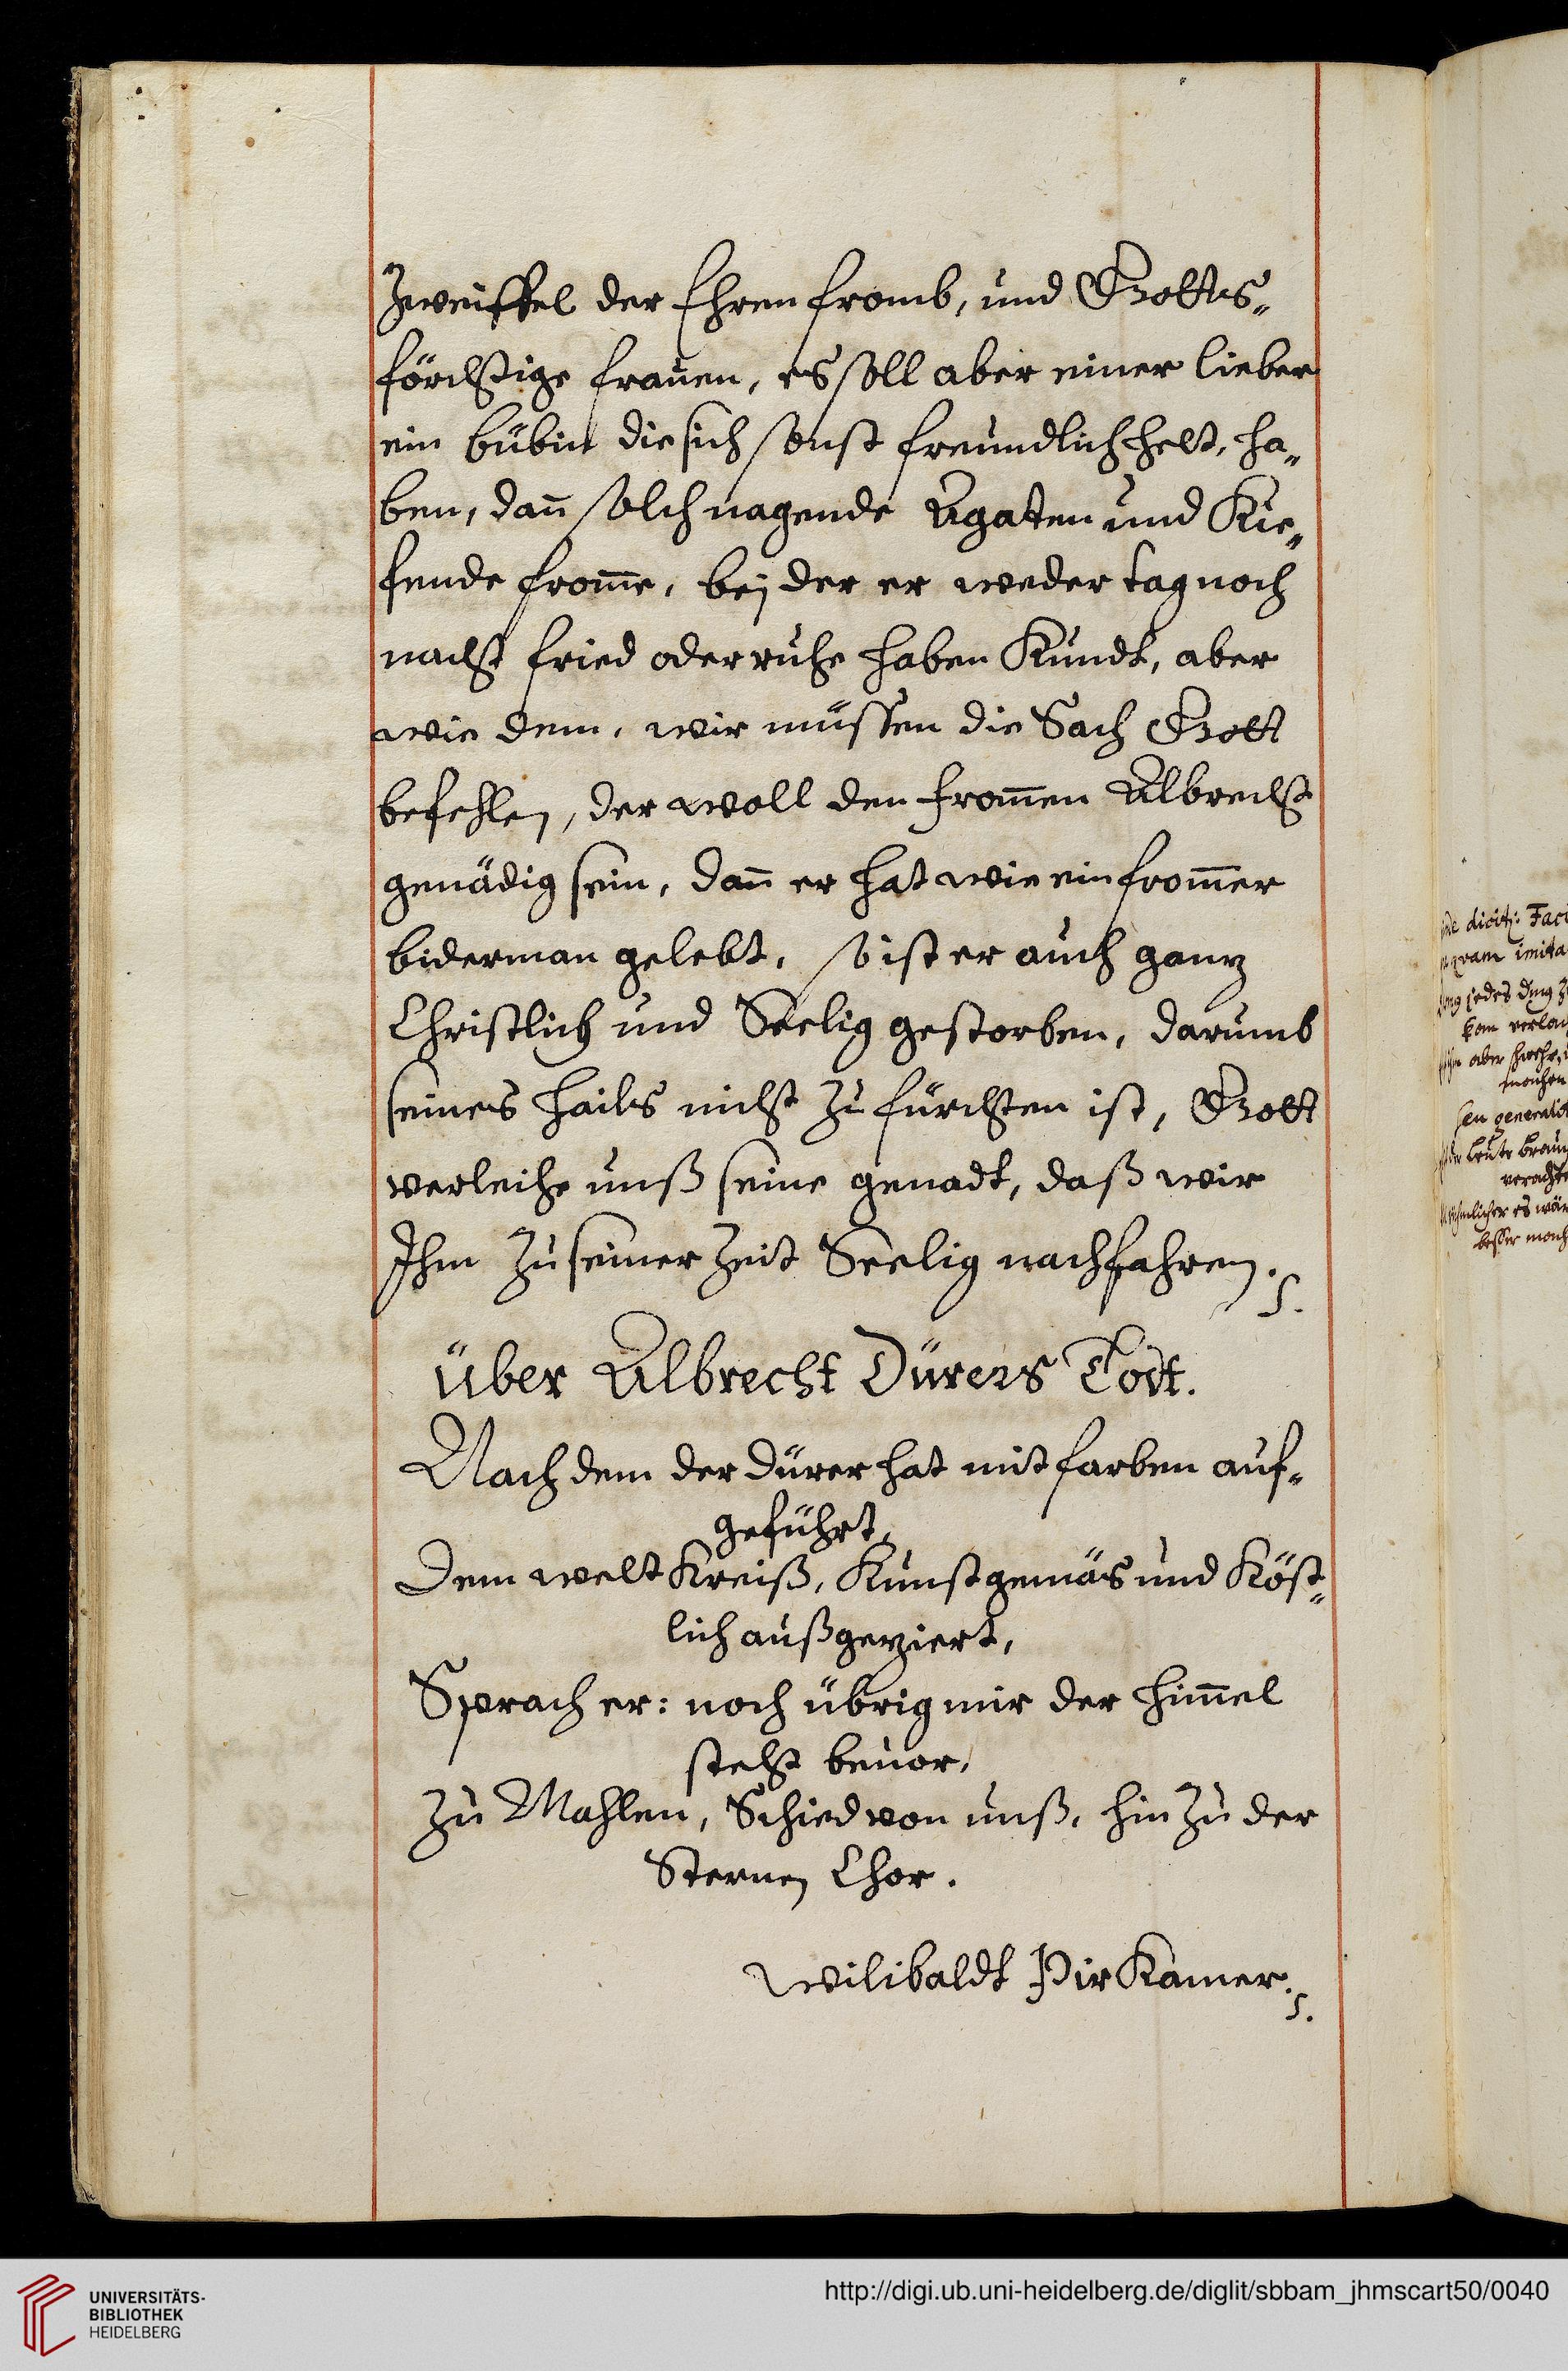 Zweiffel der Ehren fromb, und Gottes„
förchtige frauen, es soll aber einer lieber
ein bübin die sich sonst freundlich helt, ha„
ben, dan̄ solch nagende Agaten und Kie„
fende from̄e, bej der er weder tag noch
nacht fried oder ruhe haben Kundt, aber
wie dem, wir müssen die Sach Gott
befehlen, der woll den from̄en Albrecht
genädig sein, dan̄ er hat wie ein from̄er
biderman gelebt, so ist er auch ganz
Christlich und Seelig gestorben, darumb
seines hails nicht zu fürchten ist, Gott
verleihe unß seine genadt, daß wir
Ihm zu seiner zeit Seelig nachfahren.
über Albrecht Dürers Todt.
Nach dem der dürer hat mit farben auf„
geführt,
Dem welt Kreiß, Kunstgemäs und Köst„
lich außgeziert,
Sprach er: noch übrig mir der him̄el
steht beuor,
zu Mahlen, Schied von unß, hin zu der
Sternen Chor.
Wilibaldt PirKamer.
dicit: Faci
imita
jedes ding
kan
aber
generali
der leute
veracht
es wär
besser mach
UNIVERSITÄTS-
BIBLIOTHEK
HEIDELBERG
http://digi.ub.uni-heidelberg.de/diglit/sbbam_jhmscart50/0040